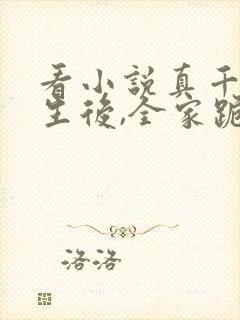 看小說真千
生後,全家跪
洛洛